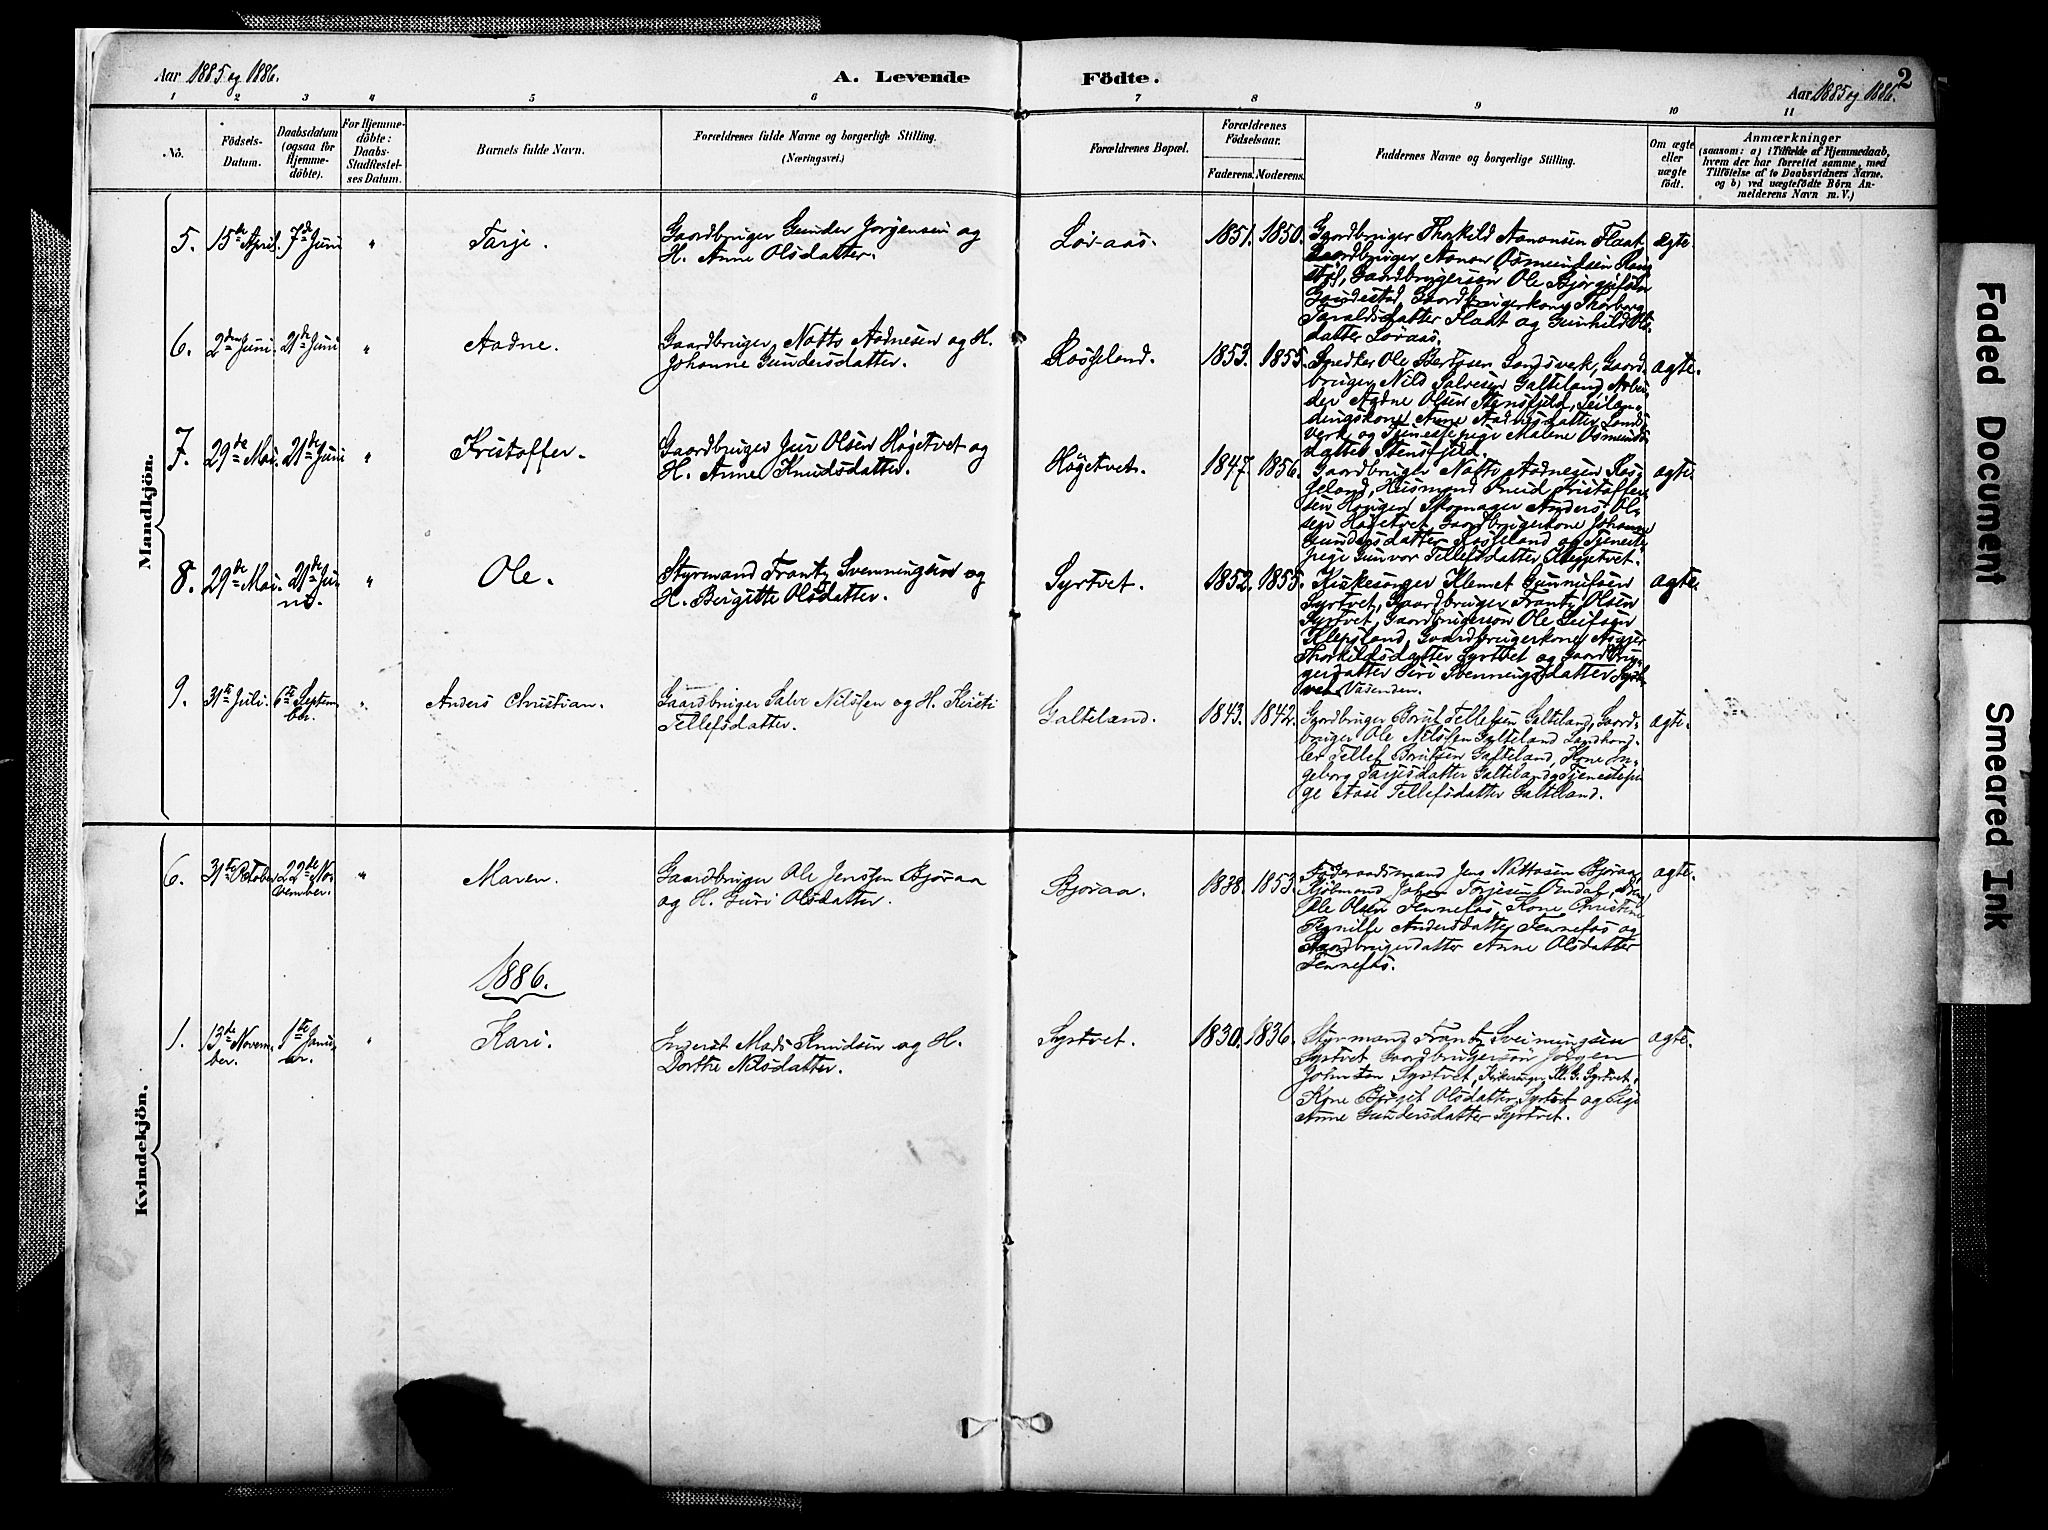 Aar 1885 og 1886.
A. Levende Födte.
Aar 1885 og 1886.
2
1 2 3 4 5 6 7 8 9 10 11
No.
Födsels-
Datum.
Daabsdatum
(ogsaa for
Hjemme-
döbte).
For Hjemme-
döbte:
Daabs-
Stadfæstel-
ses Datum.
Barnets fulde Navn.
Forældrenes fulde Navne og borgerlige Stilling.
(Næringsvei.)
Forældrenes Bopæl.
Forældrenes
Födselsaar.
Faderens. Moderens.
Faddernes Navne og borgerlige Stilling.
Om ægte
eller
uægte
födt.
Anmærkninger
(saasom: a) i Tilfælde af Hjemmedaab,
hvem der har forrettet samme, med
Tilföielse af to Daabsvidners Navne.
og b) ved uægtefödte Börn An-
melderens Navn m. V.)
Mandkjön.
5. 15de April. 7de Juni " Tarje.
Gaardbruger Gunder Jørgensen og
H. Anne Olsdatter.
Løraas. 1851. 1850.
Gaardbruger Thorkild Aanonsen Flaat
Gaardbruger Aanon Osmundsen
Gaardbrugersøn Ole
Gaardbrugerkone Thorborg
Taraldsdatter Flaat og Gunhild Ols-
datter Løraas.
ægte
6. 2den Juni 21de Juni " Aadne.
Gaardbruger Notto Aadnesen og H.
Johanne Gundersdatter.
Rosseland. 1853. 1855.
Smed Ole Berthsen Landsverk, Gaard-
bruger Nils Salvesen Galteland, Arbei-
der Aadne Olsen Stensfjeld,
Anne Aadnesdatter Lands-
verk og Tjenestepige Malene Osmunds-
datter Stensfjeld.
ægte.
7. 29de Mai. 21de Juni " Kristoffer.
Gaardbruger Jens Olsen Høgetvet og
H. Anne Knudsdatter.
Høgetvet. 1847. 1856.
Gaardbruger Notto Aadnesen Ros-
seland, Husmand Knud Kristoffer-
sen Skomager Anders Ol-
sen Høgetvet, Gaardbrugerkone Johanne
Gundersdatter Rosseland og Tjeneste-
pige Gunvor Tellefsdatter
ægte.
8. 29de Mai. 21de Ju-
ni. " Ole.
Styrmand Frantz Svenningsen og
H. Birgitte Olsdatter.
Syrtvet. 1852. 1855.
Kirkesanger Klemet Gunnufsen
Syrtvet, Gaardbruger Frantz Olsen
Syrtvet, Gaardbrugersøn Ole Leifsen
Klepsland, Gaardbrugerkone Asgjer
Thorkildsdatter Syrtvet og Gaardbru-
gerdatter Siri Svenningsdatter Syrt-
vet
ægte.
9. 31te Juli. 6te Septem-
ber. " Anders Christian.
Gaardbruger Salve Nilssen og H. Kirsti
Tellefsdatter.
Galteland. 1843. 1842.
Gaardbruger Berut Tellefsen Galteland, Gaard-
bruger Ole Nilssen Galteland Landhand-
ler Tellef Berutsen Galteland, Kone In-
geborg Tarjesdatter Galteland og Tjenestepi-
ge Aase Tellefsdatter Galteland.
ægte.
Kvindekjön.
6. 31te October 22de No-
vember. " Maren.
Gaardbruger Ole Jenssen Bjøraa
og H. Guri Olsdatter.
Bjøraa. 1838. 1853.
Føderaadsmand Jens Nottosen Bjøraa,
Johan Torjesen
Ole Olsen Fennefos, Kone Christine
Pernille Andersdatter Fennefos og
Gaardbrugerdatter Anne Olsdatter
Fennefos.
ægte.
1886.
1. 13de Novem-
ber. 1te Janu-
ar. " Kari.
Inderst Mads Knudsen og H.
Dorthe Nilsdatter.
Syrtvet. 1830. 1836.
Styrmand Frantz Svenningsen
Syrtvet Gaardbrugersøn Jørgen
Syrtvet, Kirkesanger Kl. G. Syrtvet,
Kone Birgit Olsdatter Syrtvet og Pige
Anne Gundersdatter Syrtvet.
ægte.
Faded Document
Smeared Ink